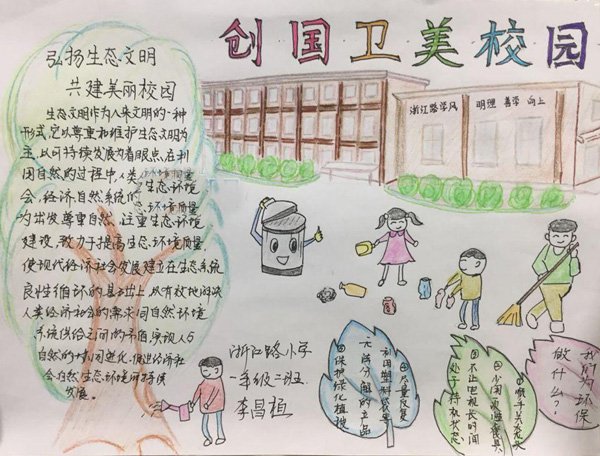 创国卫美校园
弘扬生态文明
共建美丽校园
生态文明作为人类文明的一种
形式,它以尊重和维护生态文明为
主,以可持续发展为着眼点,在利
用自然的过程中,人类
会,经济,自然系统的生态环境质量
为出发尊重自然,注重生态环境
建设,致力于提高生态环境质量,
使现代经济社会发展建立在生态系统
良性循环的基础上,以有效地解决
人类经济社会的需求同自然环境
系统供给之间的矛盾,实现人与
自然的协同进化,促进经济社
会自然,生态环境可持续
发展。
浙江路学风 明理 善学 向上
浙江路小学
一年级二班
李昌植
我们为环保
做什么?
①顺手关灯
②少用
③不让电视长时间
处于待机状态
④尽量反复
利用塑料袋
⑥保护绿化植被